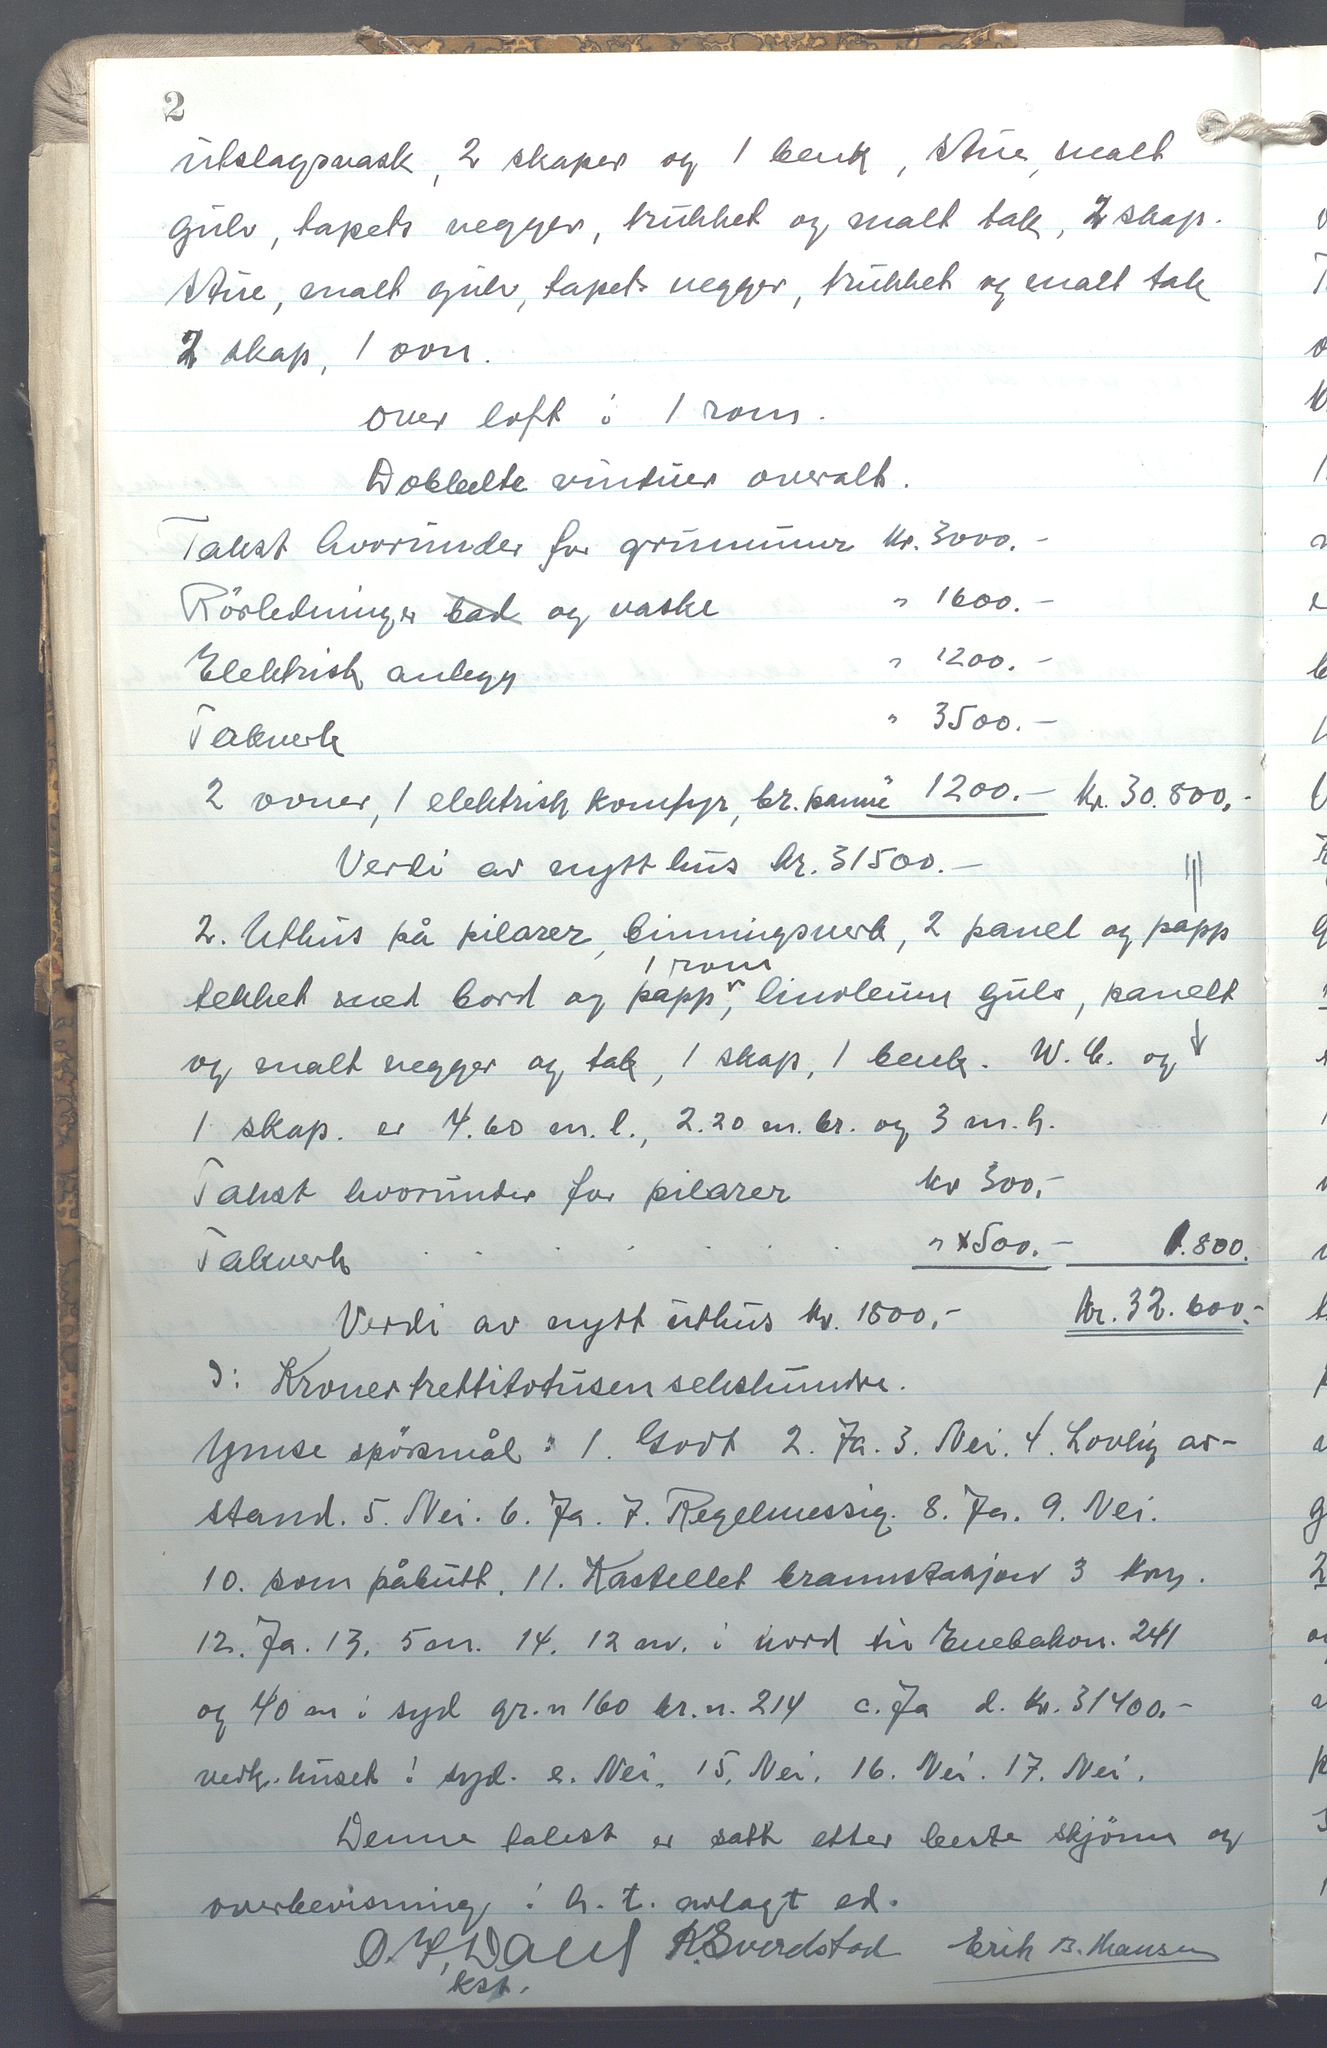 2
utslagsvask, 2 skaper og 1 benk, stue, malt
gulv, tapets vegger, trukket og malt tak, 2 skap.
Stue, malt gulv, tapets vegger, trukket og malt tak
2 skap, 1 ovn.
Over loft i 1 rom.
Dobbelte vinduer overalt.
Takst hvorunder for grunnmur kr. 3000.-
Rörledninger bad og vaske " 1600.-
Elektrisk anlegg " 1200.-
Takverk " 3500.-
2 ovner, 1 elektrisk komfyr, br. panne " 1200.- kr. 30.800,-
Verdi av nytt hus kr. 31500.-
2. Uthus på pilarer, binningsverk, 2 panel og papp
1 rom
tekket med bord og papp, linoleum gulv, panelt
og malt vegger og tak, 1 skap, 1 benk. W.C. og
1 skap. er 4.60 m.l., 2.20 m.br. og 3 m.h.
Takst hvorunder for pilarer kr 300,-
Takverk . . . . . . . " 500.- 1.800.
Verdi av nytt uthus kr. 1800,- kr. 32.600.-
ɔ: Kroner trettitotusenseks hundre.
Ymse spörsmål: 1. Godt 2. Ja. 3. Nei. 4. Lovlig av-
stand. 5. Nei. 6. Ja. 7. Regelmessig. 8. Ja. 9. Nei.
10. som påbutt. 11. Kastellet brannstasjon 3 km.
12. Ja. 13. 5 m. 14. 12 m. i nord til Enebakkv. 241
og 40 m i syd gr.n 160 br.n. 214 c. Ja d. kr. 31400.-
verk. huset i syd. e. Nei. 15. Nei. 16. Nei. 17. Nei.
Denne takst er satt etter beste skjönn og
overbevisning i h. t. avlagt ed.
O. H. Dahl K. Sverdstad Erik B. Hansen
kst.